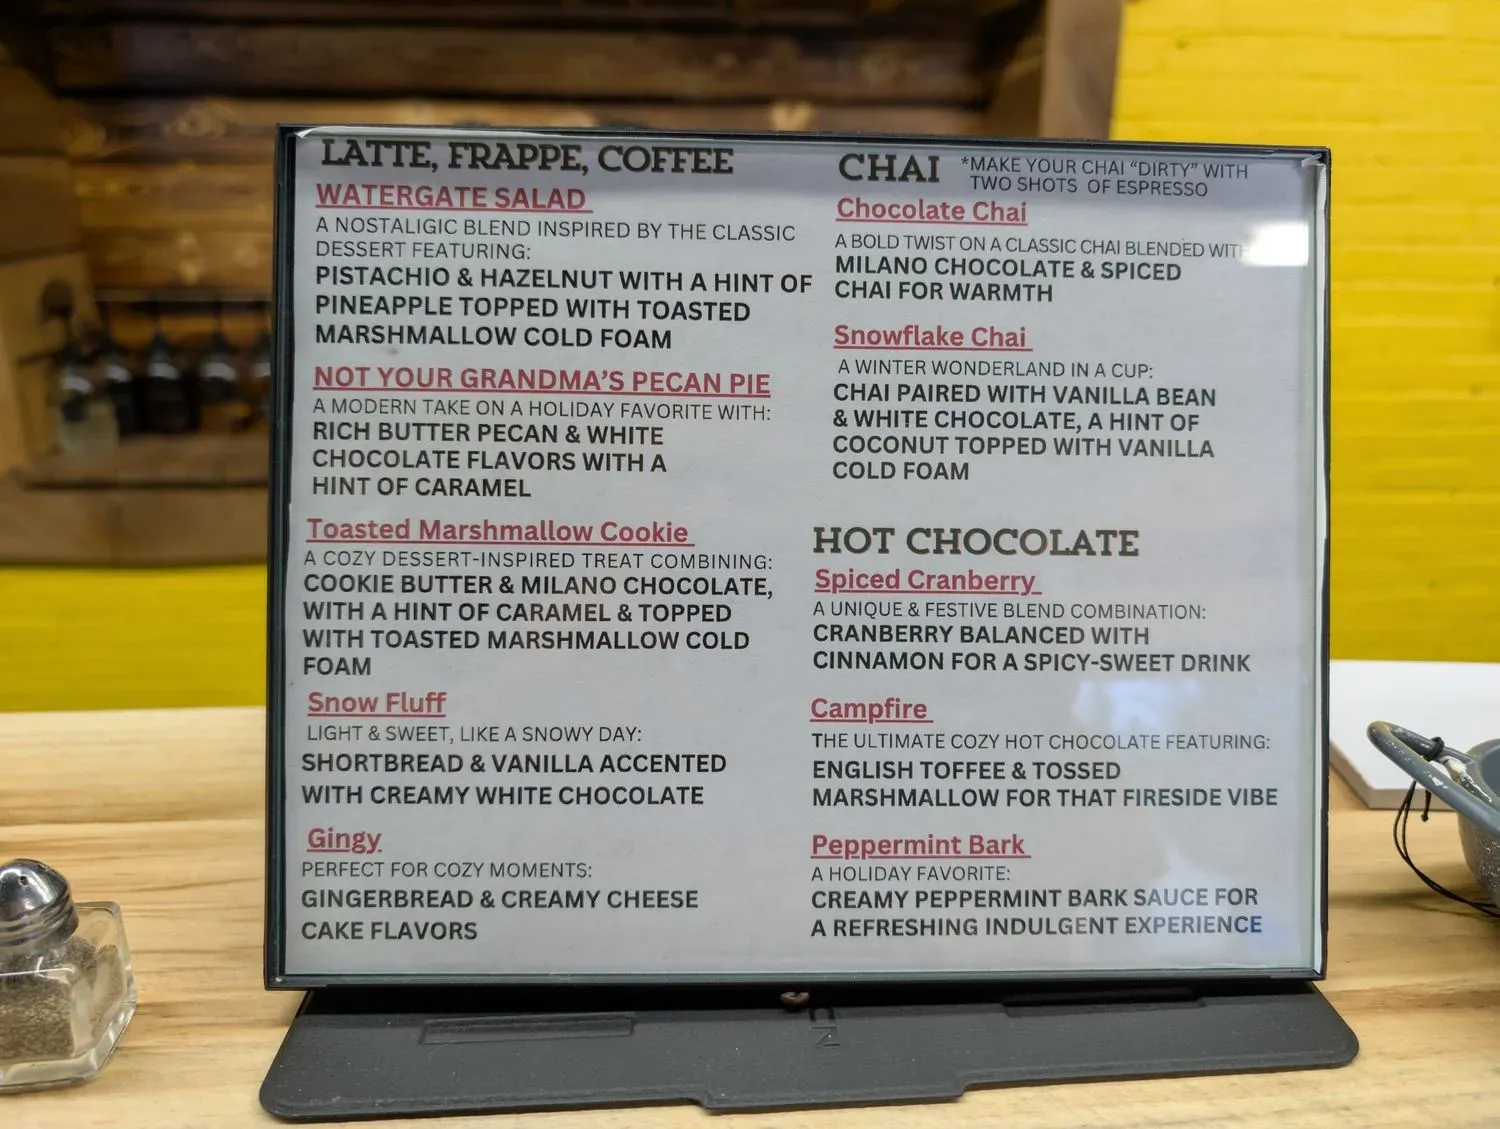 LATTE, FRAPPE, COFFEE
WATERGATE SALAD
A NOSTALIGIC BLEND INSPIRED BY THE CLASSIC
DESSERT FEATURING:
PISTACHIO & HAZELNUT WITH A HINT OF
PINEAPPLE TOPPED WITH TOASTED
MARSHMALLOW COLD FOAM
NOT YOUR GRANDMA'S PECAN PIE
A MODERN TAKE ON A HOLIDAY FAVORITE WITH:
RICH BUTTER PECAN & WHITE
CHOCOLATE FLAVORS WITH A
HINT OF CARAMEL
Toasted Marshmallow Cookie
A COZY DESSERT-INSPIRED TREAT COMBINING:
COOKIE BUTTER & MILANO CHOCOLATE,
WITH A HINT OF CARAMEL & TOPPED
WITH TOASTED MARSHMALLOW COLD
FOAM
Snow Fluff
LIGHT & SWEET, LIKE A SNOWY DAY:
SHORTBREAD & VANILLA ACCENTED
WITH CREAMY WHITE CHOCOLATE
Gingy
PERFECT FOR COZY MOMENTS:
GINGERBREAD & CREAMY CHEESE
CAKE FLAVORS
CHAI
*MAKE YOUR CHAI "DIRTY" WITH
TWO SHOTS OF ESPRESSO
Chocolate Chai
A BOLD TWIST ON A CLASSIC CHAI BLENDED WITH
MILANO CHOCOLATE & SPICED
CHAI FOR WARMTH
Snowflake Chai
A WINTER WONDERLAND IN A CUP:
CHAI PAIRED WITH VANILLA BEAN
& WHITE CHOCOLATE, A HINT OF
COCONUT TOPPED WITH VANILLA
COLD FOAM
HOT CHOCOLATE
Spiced Cranberry
A UNIQUE & FESTIVE BLEND COMBINATION:
CRANBERRY BALANCED WITH
CINNAMON FOR A SPICY-SWEET DRINK
Campfire
THE ULTIMATE COZY HOT CHOCOLATE FEATURING:
ENGLISH TOFFEE & TOSSED
MARSHMALLOW FOR THAT FIRESIDE VIBE
Peppermint Bark
A HOLIDAY FAVORITE:
CREAMY PEPPERMINT BARK SAUCE FOR
A REFRESHING INDULGENT EXPERIENCE